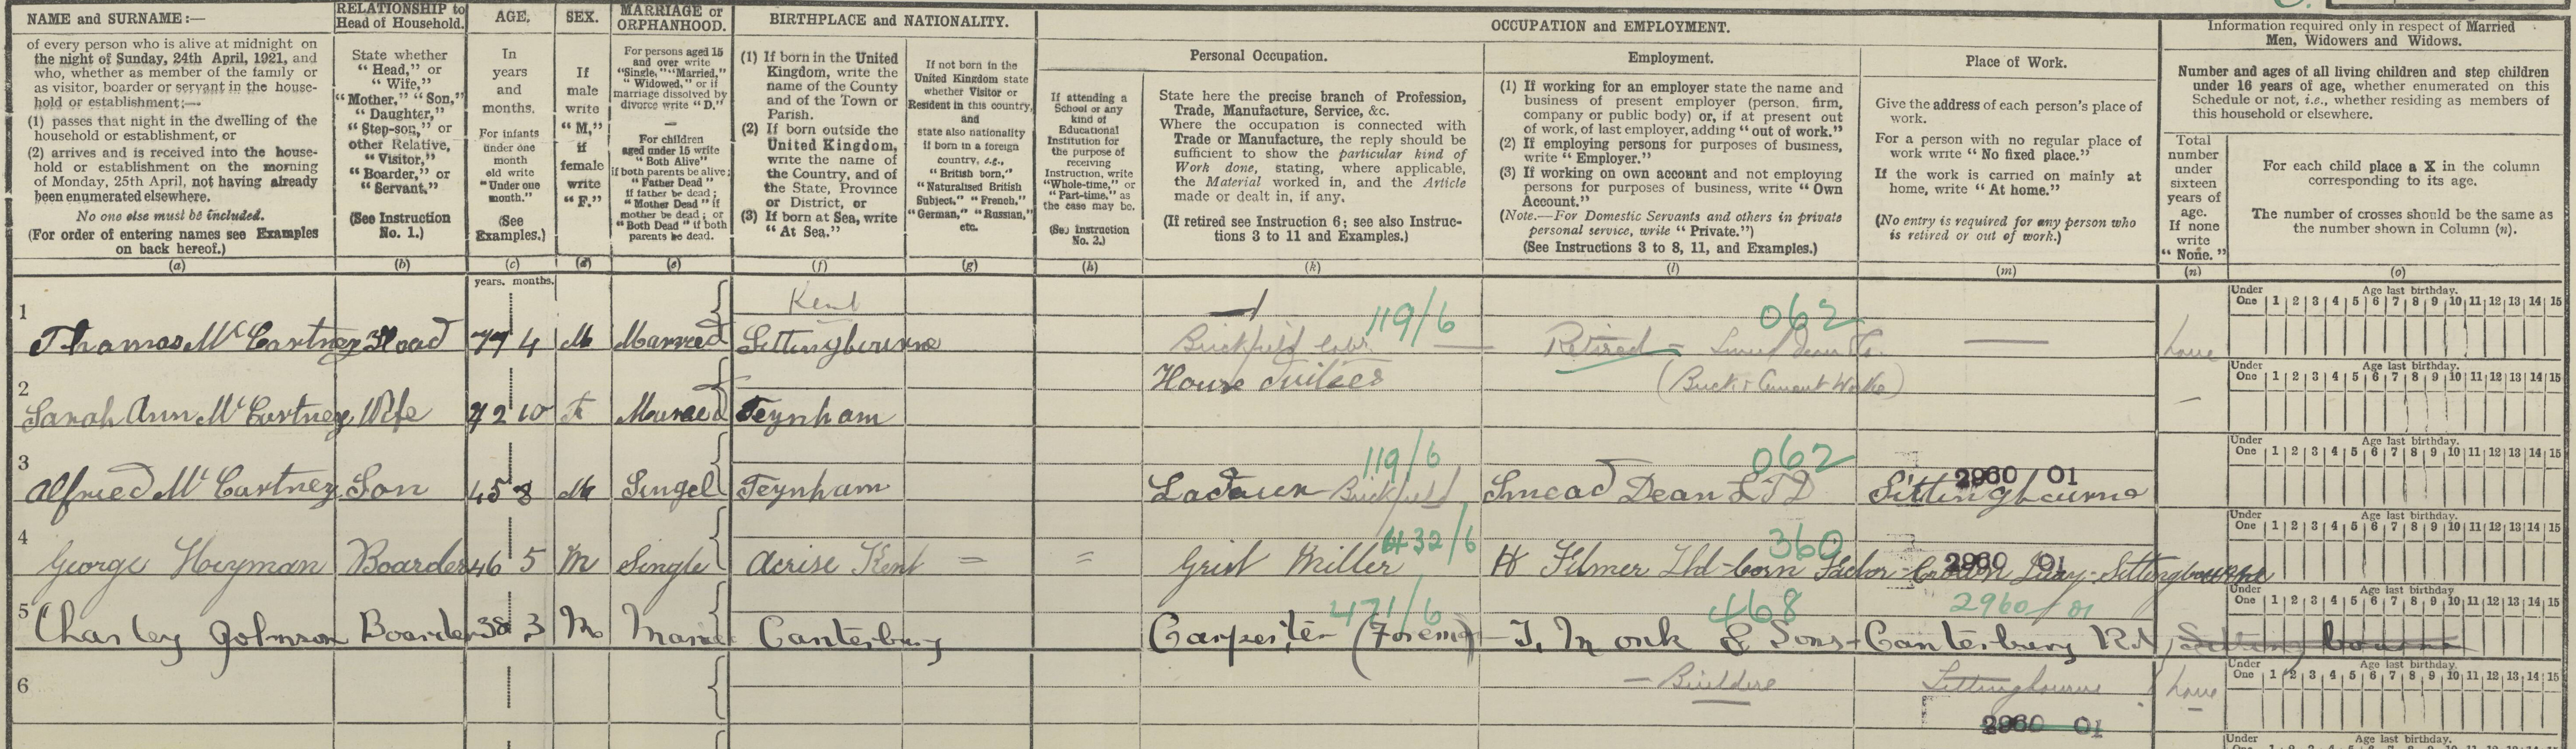 NAME and SURNAME:—
of every person who is alive at midnight on
the night of Sunday, 24th April, 1921, and
who, whether as member of the family or
as visitor, boarder or servant in the house-
hold or establishment:—
(1) passes that night in the dwelling of the
household or establishment, or
(2) arrives and is received into the house-
hold or establishment on the morning
of Monday, 25th April, not having already
been enumerated elsewhere.
No one else must be included.
(For order of entering names see Examples
on back hereof.)
(a)
RELATIONSHIP to
Head of Household.
State whether
"Head," or
"Wife,"
"Mother," "Son,"
"Daughter,"
"Step-son," or
other Relative,
"Visitor,"
"Boarder," or
"Servant."
(See Instruction
No. 1.)
(b)
AGE.
In
years
and
months.
For infants
under one
month
old write
"Under one
month."
(See
Examples.)
(c)
SEX.
If
male
write
"M,"
if
female
write
"F."
(d)
MARRIAGE or
ORPHANHOOD.
For persons aged 15
and over write
"Single," "Married,"
"Widowed," or if
marriage dissolved by
divorce write "D."
—
For children
aged under 15 write
"Both Alive"
if both parents be alive;
"Father Dead"
if father be dead;
"Mother Dead" if
mother be dead; or
"Both Dead" if both
parents be dead.
(e)
BIRTHPLACE and NATIONALITY.
(1) If born in the United
Kingdom, write the
name of the County
and of the Town or
Parish.
(2) If born outside the
United Kingdom,
write the name of
the Country, and of
the State, Province
or District, or
(3) If born at Sea, write
"At Sea."
(f)
If not born in the
United Kingdom state
whether Visitor or
Resident in this country,
and
state also nationality
if born in a foreign
country, e.g.,
"British born,"
"Naturalised British
Subject," "French,"
"German," "Russian,"
etc.
(g)
OCCUPATION and EMPLOYMENT.
Personal Occupation.
If attending a
School or any
kind of
Educational
Institution for
the purpose of
receiving
Instruction, write
"Whole-time," or
"Part-time," as
the case may be.
(See Instruction
No. 2.)
(h)
State here the precise branch of Profession,
Trade, Manufacture, Service, &c.
Where the occupation is connected with
Trade or Manufacture, the reply should be
sufficient to show the particular kind of
Work done, stating, where applicable,
the Material worked in, and the Article
made or dealt in, if any.
(If retired see Instruction 6; see also Instruc-
tions 3 to 11 and Examples.)
(k)
Employment.
(1) If working for an employer state the name and
business of present employer (person, firm,
company or public body) or, if at present out
of work, of last employer, adding "out of work."
(2) If employing persons for purposes of business,
write "Employer."
(3) If working on own account and not employing
persons for purposes of business, write "Own
Account."
(Note.—For Domestic Servants and others in private
personal service, write "Private.")
(See Instructions 3 to 8, 11, and Examples.)
(l)
Place of Work.
Give the address of each person's place of
work.
For a person with no regular place of
work write "No fixed place."
If the work is carried on mainly at
home, write "At home."
(No entry is required for any person who
is retired or out of work.)
(m)
Information required only in respect of Married
Men, Widowers and Widows.
Number and ages of all living children and step children
under 16 years of age, whether enumerated on this
Schedule or not, i.e., whether residing as members of
this household or elsewhere.
Total
number
under
sixteen
years of
age.
If none
write
"None."
(n)
For each child place a X in the column
corresponding to its age.
The number of crosses should be the same as
the number shown in Column (n).
(o)
years. months.
Under One Age last birthday. 1 2 3 4 5 6 7 8 9 10 11 12 13 14 15
Kent
119/6 062
1 Thomas McCartney Head 77 4 M Married Sittingbourne Brickfield labr. — Retired — Smeed Dean Co. —
(Brick & Cement Works)
Under One Age last birthday. 1 2 3 4 5 6 7 8 9 10 11 12 13 14 15
House Duties
2 Sarah Ann McCartney Wife 72 10 F Married Teynham
Under One Age last birthday. 1 2 3 4 5 6 7 8 9 10 11 12 13 14 15
119/6 062 2960/01
3 Alfred McCartney Son 45 8 M Singel Teynham Labourer Brickfield Smead Dean LTD Sittingbourne
Under One Age last birthday. 1 2 3 4 5 6 7 8 9 10 11 12 13 14 15
432/6 360 2960 01
4 George Heyman Boarder 46 5 M Single Acrise Kent = = Grist Miller H Filmer Ltd - Corn Factor - Crown Quay - Sittingbourne
Under One Age last birthday. 1 2 3 4 5 6 7 8 9 10 11 12 13 14 15
471/6 468 2960/01
5 Charley Johnson Boarder 38 3 M Canterbury Carpenter (Foreman) - J. Monk & Sons - Canterbury Rd, Sittingbourne
Under One Age last birthday. 1 2 3 4 5 6 7 8 9 10 11 12 13 14 15
6 — Builders Sittingbourne
2960 01
Under One Age last birthday.